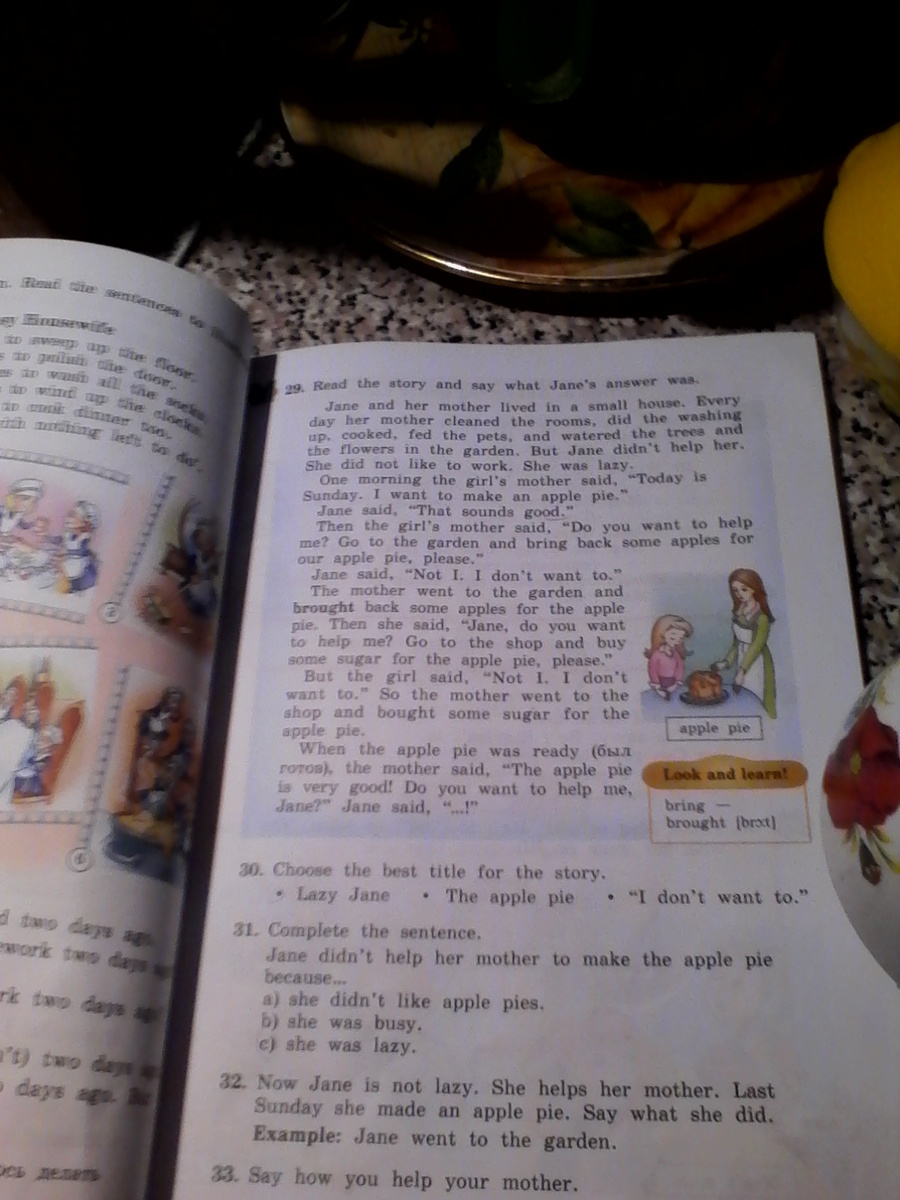 n. Read the sentences to
sy Housewife
to sweep up the floor,
s to polish the door,
es to wash all the socks,
to wind up the clocks,
to cook dinner too,
with nothing left to do.
2
4
d two days ago.
ework two days
rk two days ago
n't) two days
days ago.
ось делать
29. Read the story and say what Jane's answer was.
Jane and her mother lived in a small house. Every
day her mother cleaned the rooms, did the washing
up, cooked, fed the pets, and watered the trees and
the flowers in the garden. But Jane didn't help her.
She did not like to work. She was lazy.
One morning the girl's mother said, “Today is
Sunday. I want to make an apple pie.”
Jane said, “That sounds good.”
Then the girl's mother said, “Do you want to help
me? Go to the garden and bring back some apples for
our apple pie, please.”
Jane said, “Not I. I don't want to.”
The mother went to the garden and
brought back some apples for the apple
pie. Then she said, “Jane, do you want
to help me? Go to the shop and buy
some sugar for the apple pie, please.”
But the girl said, “Not I. I don't
want to.” So the mother went to the
shop and bought some sugar for the
apple pie.
When the apple pie was ready (был
готов), the mother said, “The apple pie
is very good! Do you want to help me,
Jane?” Jane said, “...!”
apple pie
Look and learn!
bring —
brought [brɔt]
30. Choose the best title for the story.
• Lazy Jane • The apple pie • “I don't want to.”
31. Complete the sentence.
Jane didn't help her mother to make the apple pie
because...
a) she didn't like apple pies.
b) she was busy.
c) she was lazy.
32. Now Jane is not lazy. She helps her mother. Last
Sunday she made an apple pie. Say what she did.
Example: Jane went to the garden.
33. Say how you help your mother.